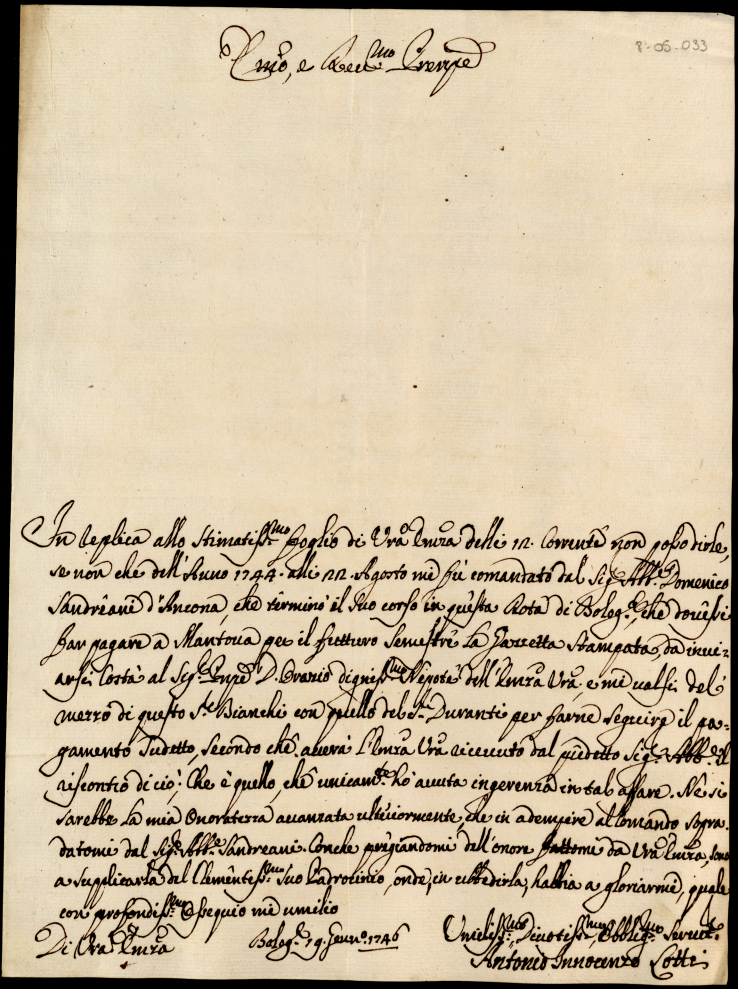 8-05-033
Em̃o, e Reu.mo Prenpe
In replica allo stimatiss.mo foglio di Vrã Emza delli 12. Corrente non posso dirle,
se non che dell'Anno 1744. alli 22. Agosto mi fù comandato dal Sig.r Abb.e Domenico
Sandreani d'Ancona, che terminò il suo corso in questa Rota di Bolog.a, che dovessi
far pagare a Mantova per il futturo Semestre la Gazzetta Stampata, da invi=
arsi costà al Sig.r D. Orazio digniss.mo Nepote dell'Emza Vrã, e mi valsi del
mezzo di questo S.r Bianchi con quello del S.r Duranti per farne seguire il pa=
gamento sudetto, secondo che averà l'Emza Vrã ricevuto dal pñdetto Sig.r Abb.e il
riscontro di ciò: Che è quello, che unicam.te hò avuta ingerenza in tal affare. Ne si
sarebbe la mia Onoratezza avanzata ulteriormente, che in adempire al Comando sopra.
datomi dal Sig.r Abb.e Sandreani. Conche pregiandomi dell'onore fattomi da Vrã Emza, sono
a supplicarla del Clementiss.mo suo Padrocinio, onde, in ubbedirla, habbia a gloriarmi, quale
con profondiss.mo Ossequio mi umilio
Di Vrã Emza Bolog.a 19. Genn.o 1746 Umiliss.mo Divotiss.mo Obblig.mo Servit.e
Antonio Innocenzo Lotti